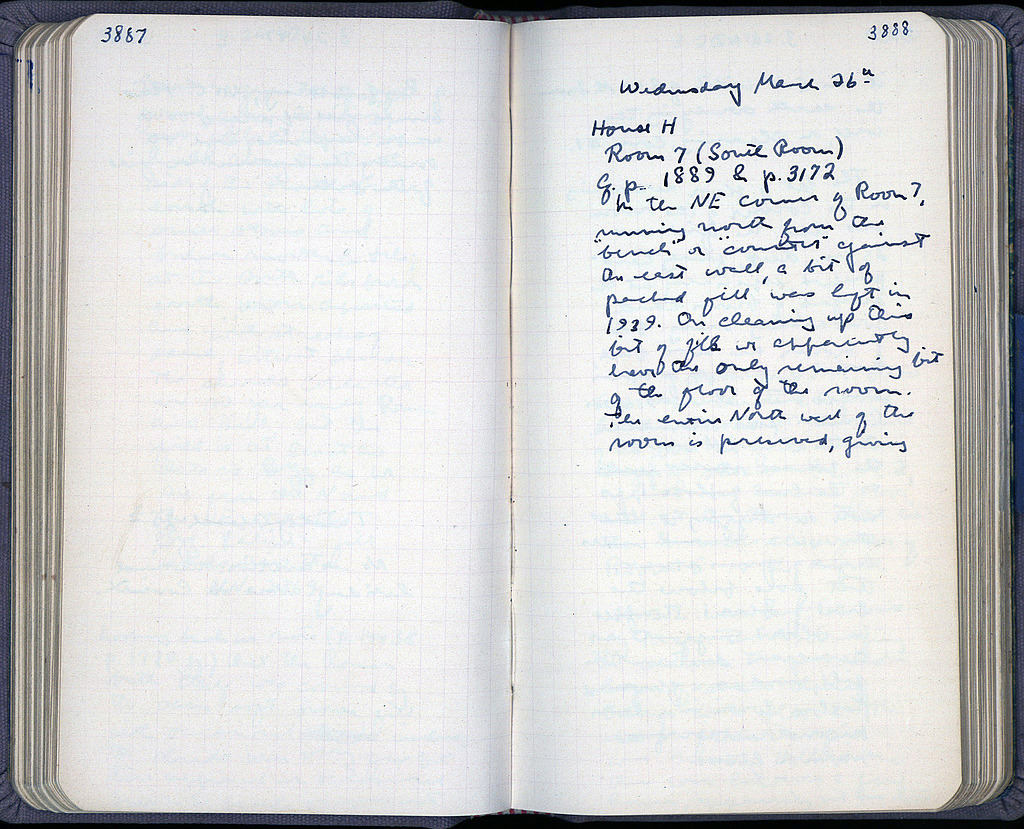 3887
3888
Wednesday March 26th
House H
Room 7 (South Room)
p. 1889 & p. 3172
In the NE corner of Room 7,
running north from the
"bench" or "counter" against
the east wall, a bit of
packed fill was left in
1939. On cleaning up this
bit of fill we apparently
have the only remaining bit
of the floor of the room.
The entire North wall of the
room is preserved, giving